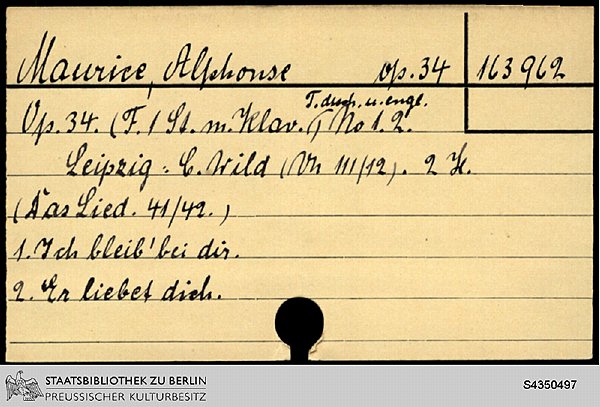 Maurice, Alphonse op. 34 163 962
T. dtsch. u. engl.
Op. 34. (F. 1 St. m. Klav.) No 1. 2.
Leipzig: C. Wild (Vh III/12). 2 H.
(Das Lied. 41/42.)
1. Ich bleib' bei dir.
2. Er liebet dich.
STAATSBIBLIOTHEK ZU BERLIN
PREUSSISCHER KULTURBESITZ
S4350497